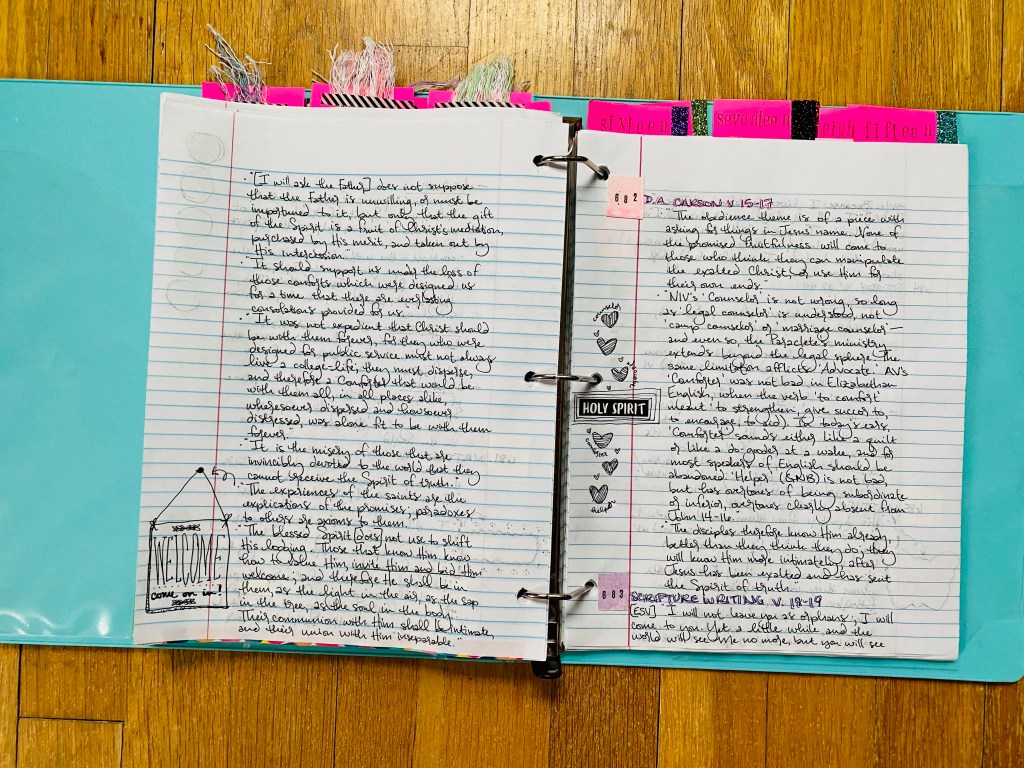 · [I will ask the Father] does not suppose
that the Father is unwilling, or must be
importuned to it, but only that the gift
of the Spirit is a fruit of Christ's mediation,
purchased by His merit, and taken out by
His intercession.
· It should support us under the loss of
those comforts which were designed us
for a time that there are everlasting
consolations provided for us.
· It was not expedient that Christ should
be with them forever, for they who were
designed for public service must not always
live a college-life; they must disperse,
and therefore a Comforter that would be
with them all, in all places alike,
wheresoever dispersed and howsoever
distressed, was alone fit to be with them
forever.
· It is the misery of those that are
invincibly devoted to the world that they
cannot receive the Spirit of truth.
· The experiences of the saints are the
explications of the promises; paradoxes
to others are axioms to them.
· The blessed Spirit [does] not use to shift
His lodging. Those that know Him know
how to value Him, invite Him and bid Him
welcome; and therefore He shall be in
them, as the light in the air, as the sap
in the tree, as the soul in the body.
Their communion with Him shall be intimate,
and their union with Him inseparable.
WELCOME
come on in!
sixteen
seventeen
eigh fifteen
682
D.A. CARSON V 15-17
· The obedience theme is of a piece with
asking for things in Jesus' name. None of
the promised fruitfulness will come to
those who think they can manipulate
the exalted Christ, or use Him for
their own ends.
· NIV's 'Counselor' is not wrong, so long
as 'legal counselor' is understood, not
'camp counselor' or 'marriage counselor'—
and even so, the Paraclete's ministry
extends beyond the legal sphere. The
same limitation afflicts 'Advocate.' AV's
'Comforter' was not bad in Elizabethan
English, when the verb 'to comfort'
meant 'to strengthen, give succor to,
to encourage, to aid). In today's ears,
'Comforter' sounds either like a quilt
or like a do-gooder at a wake, and for
most speakers of English should be
abandoned. 'Helper' (GNB) is not bad,
but has overtones of being subordinate
or inferior, overtones clearly absent from
John 14-16.
· The disciples therefore know Him already,
better than they think they do; they
will know Him more intimately after
Jesus has been exalted and has sent
the Spirit of truth.
counselor
HOLY SPIRIT
Helper
683
SCRIPTURE WRITING V. 18-19
[ESV] 'I will not leave you as orphans; I will
come to you. Yet a little while and the
world will see Me no more, but you will see